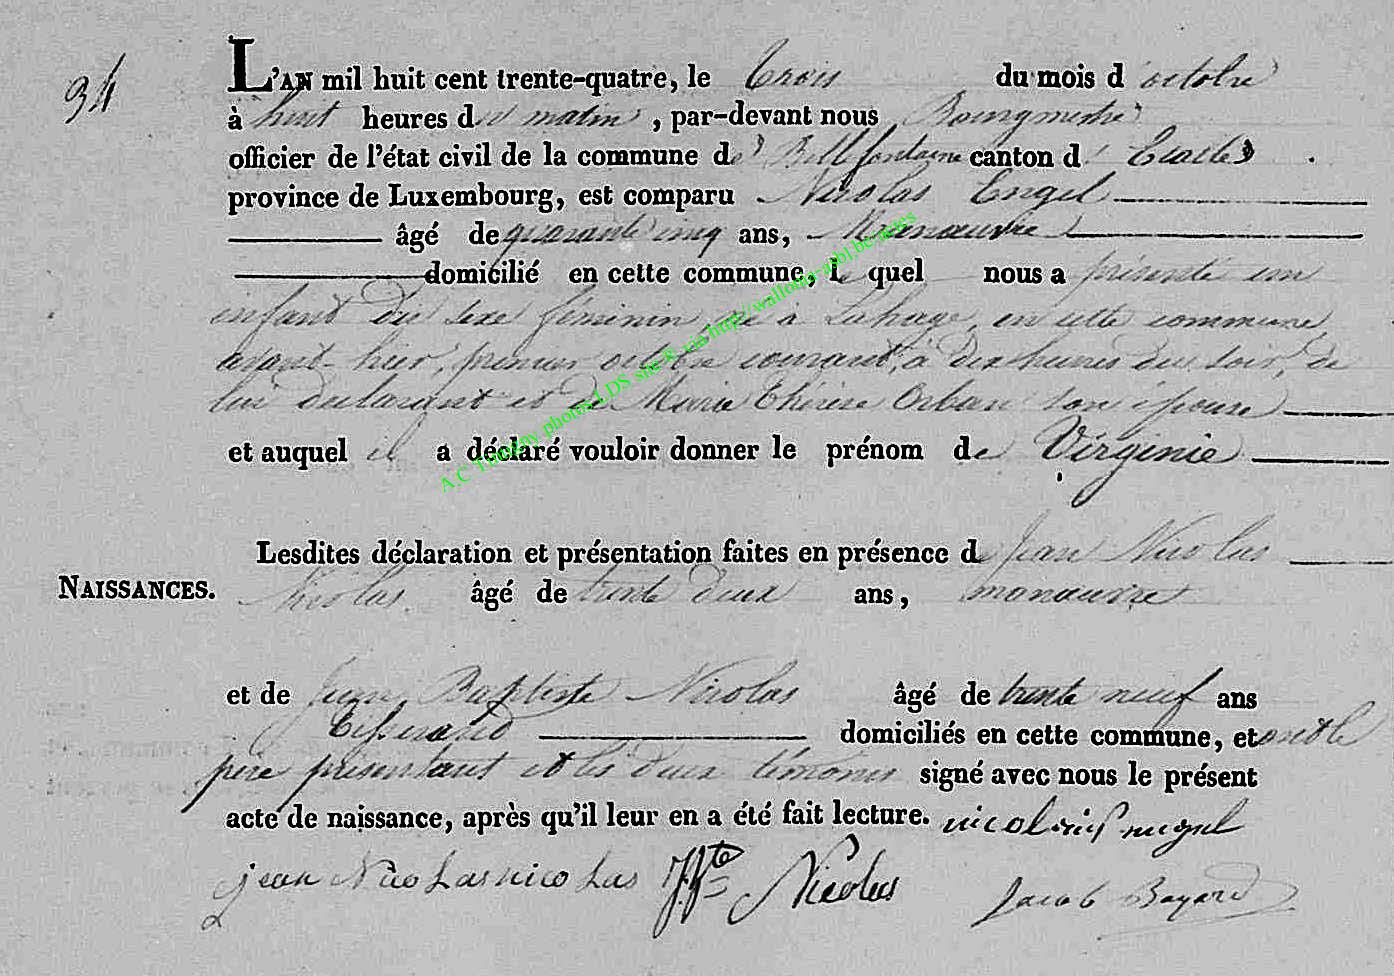 34
L'AN mil huit cent trente-quatre, le trois du mois d'octobre
à huit heures du matin, par-devant nous Bourgmestre
officier de l'état civil de la commune de Bellefontaine canton d'Etalle
province de Luxembourg, est comparu Nicolas Engel
âgé de quarante cinq ans, Manœuvre
domicilié en cette commune, le quel nous a présenté un
enfant du sexe féminin, né à Lahage, en cette commune
avant-hier, premier octobre courant, à dix heures du soir, de
lui déclarant et de Marie Thérèse Orban son épouse
et auquel il a déclaré vouloir donner le prénom de Virginie
Lesdites déclaration et présentation faites en présence de Jean Nicolas
NAISSANCES.
Nicolas âgé de trente deux ans, manœuvre
et de Jean Baptiste Nicolas âgé de trente neuf ans
Tisserand domiciliés en cette commune, et ont le
père présentant et les deux témoins signé avec nous le présent
acte de naissance, après qu'il leur en a été fait lecture. nicolas engel
jean Nicolas nicolas J Bte Nicolas Jacob Bayard
A.C Tintigny photos LDS site ® via http://wallonia-asbl.be/actes